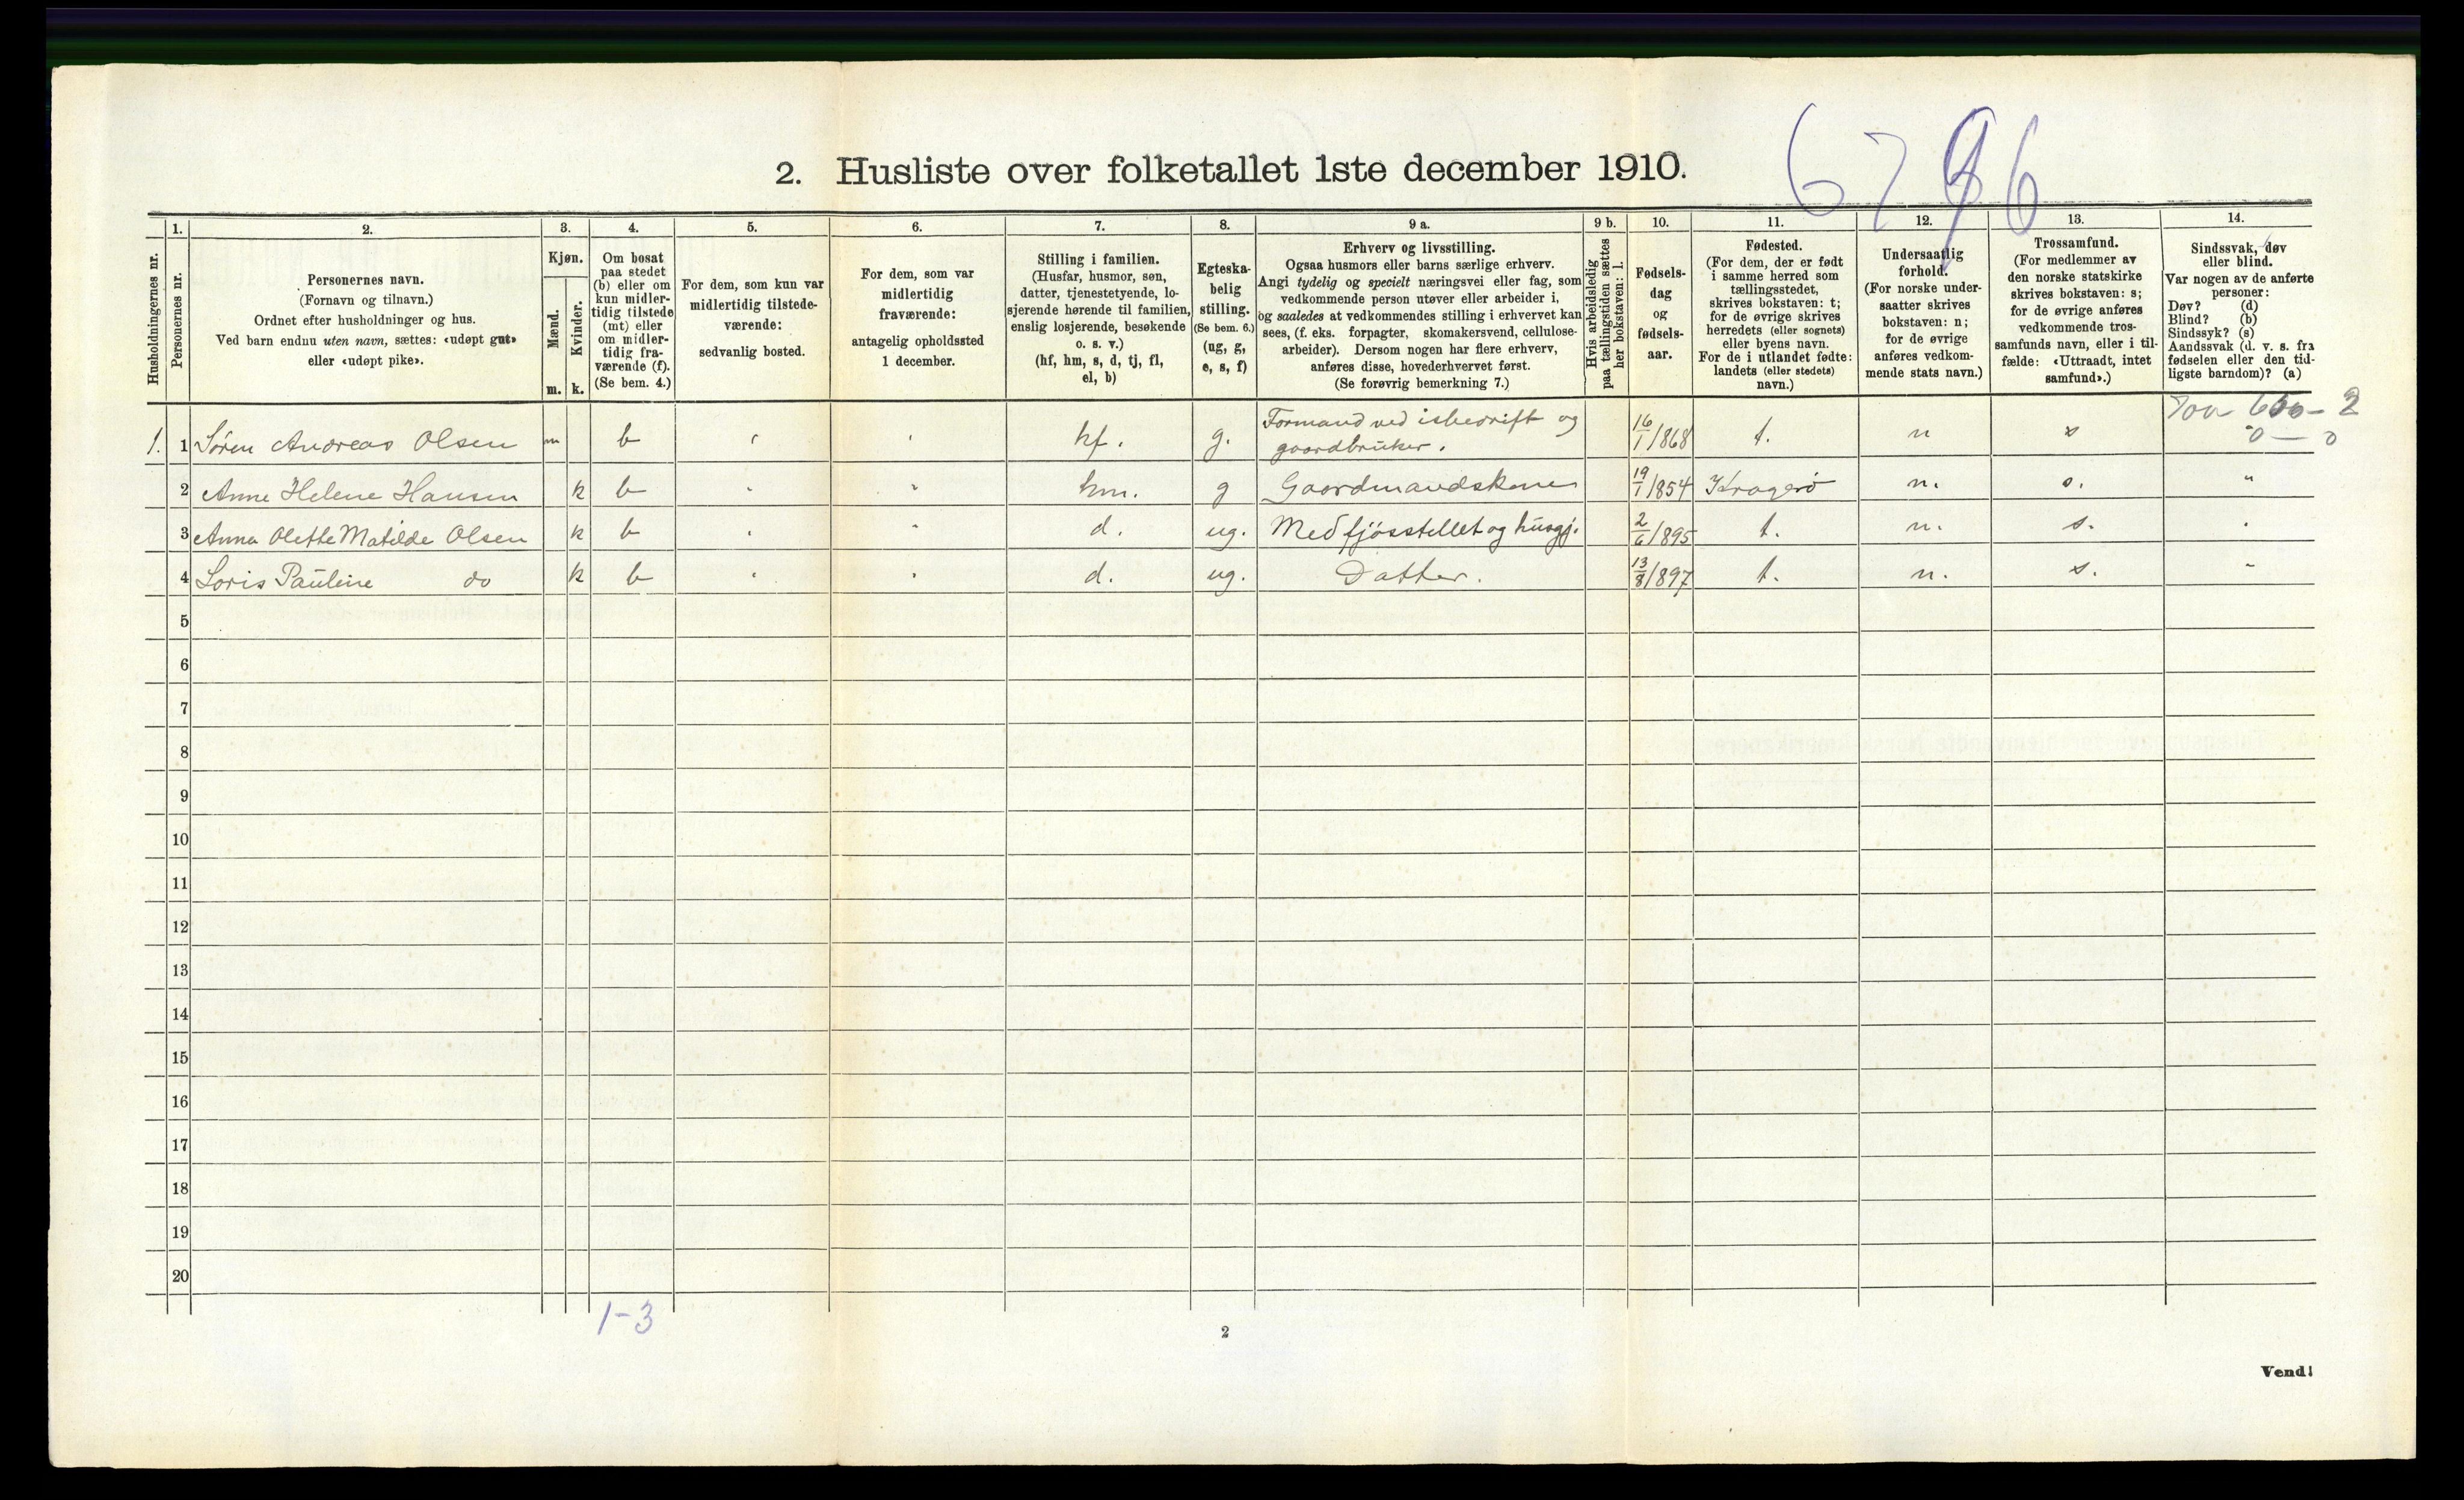 2. Husliste over folketallet 1ste december 1910.
6796
1.
2.
3.
4.
5.
6.
7.
8.
9 a.
9 b.
10.
11.
12.
13.
14.
Husholdningernes nr.
Personernes nr.
Personernes navn.
(Fornavn og tilnavn.)
Ordnet efter husholdninger og hus.
Ved barn endnu uten navn, sættes: «udøpt gut»
eller «udøpt pike».
Kjøn.
Mænd.
Kvinder.
m.
k.
Om bosat
paa stedet
(b) eller om
kun midler-
tidig tilstede
(mt) eller
om midler-
tidig fra-
værende (f).
(Se bem. 4.)
For dem, som kun var
midlertidig tilstede-
værende:
sedvanlig bosted.
For dem, som var
midlertidig
fraværende:
antagelig opholdssted
1 december.
Stilling i familien.
(Husfar, husmor, søn,
datter, tjenestetyende, lo-
sjerende hørende til familien,
enslig losjerende, besøkende
o. s. v.)
(hf, hm, s, d, tj, fl,
el, b)
Egteska-
belig
stilling.
(Se bem. 6.)
(ug, g,
e, s, f)
Erhverv og livsstilling.
Ogsaa husmors eller barns særlige erhverv.
Angi tydelig og specielt næringsvei eller fag, som
vedkommende person utøver eller arbeider i,
og saaledes at vedkommendes stilling i erhvervet kan
sees, (f. eks. forpagter, skomakersvend, cellulose-
arbeider). Dersom nogen har flere erhverv,
anføres disse, hovederhvervet først.
(Se forøvrig bemerkning 7.)
Hvis arbeidsledig
paa tællingstiden sættes
her bokstaven: l.
Fødsels-
dag
og
fødsels-
aar.
Fødested.
(For dem, der er født
i samme herred som
tællingsstedet,
skrives bokstaven: t;
for de øvrige skrives
herredets (eller sognets)
eller byens navn.
For de i utlandet fødte:
landets (eller stedets)
navn.)
Undersaatlig
forhold.
(For norske under-
saatter skrives
bokstaven: n;
for de øvrige
anføres vedkom-
mende stats navn.)
Trossamfund.
(For medlemmer av
den norske statskirke
skrives bokstaven: s;
for de øvrige anføres
vedkommende tros-
samfunds navn, eller i til-
fælde: «Uttraadt, intet
samfund».)
Sindssvak, døv
eller blind.
Var nogen av de anførte
personer:
Døv? (d)
Blind? (b)
Sindssyk? (s)
Aandssvak (d. v. s. fra
fødselen eller den tid-
ligste barndom)? (a)
0 – 0
1. 1 Søren Andreas Olsen m b hf. g. Formand ved isbedrift og gaardbruker. 16/1/868 t. n s
2 Anne Helene Hansen k b " " hm. g Gaardmandskone 19/1/854 Kragerø n. s. "
3 Anna Olette Matilde Olsen k b " " d. ug. Med fjøsstellet og husgj. 2/6/895 t. n. s. "
4 Loris Pauline do k b " " d. ug. Datter. 13/8/897 t. n. s. "
5
6
7
8
9
10
11
12
13
14
15
16
17
18
19
20
1-3
2
Vend!